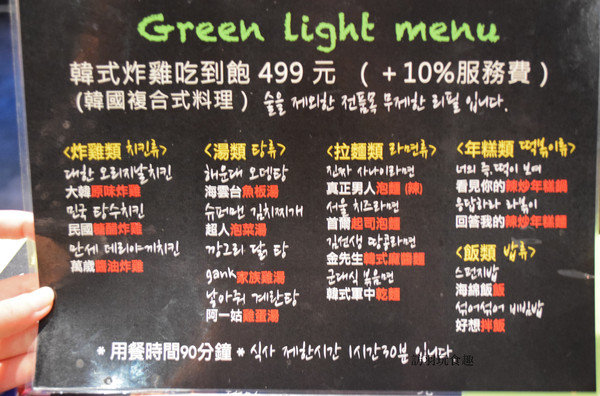 Green light menu
韓式炸雞吃到飽 499 元 （+10%服務費）
(韓國複合式料理) 술을 제외한 전품목 무제한 리필 입니다.
<炸雞類 치킨류>
대한 오리지날치킨
大韓原味炸雞
민국 탕수치킨
民國糖醋炸雞
만세 데리야끼치킨
萬歲醬油炸雞
<湯類 탕류>
해운대 오뎅탕
海雲台魚板湯
슈퍼맨 김치찌개
超人泡菜湯
깡그리 닭 탕
gank家族雞湯
날아줘 계란탕
阿一姑雞蛋湯
<拉麵類 라면류>
진짜 사나이라면
真正男人泡麵 (辣)
서울 치즈라면
首爾起司泡麵
김선생 땅콩라면
金先生韓式麻醬麵
군대식 볶음면
韓式軍中乾麵
<年糕類 떡볶이류>
너의 죽.떡이 보여
看見你的辣炒年糕鍋
응답하라 라볶이
回答我的辣炒年糕麵
<飯類 밥류>
스펀지밥
海綿飯飯
섞어섞어 비빔밥
好想拌飯
* 用餐時間90分鐘 * 식사 제한시간 1시간30분 입니다.
玩食趣